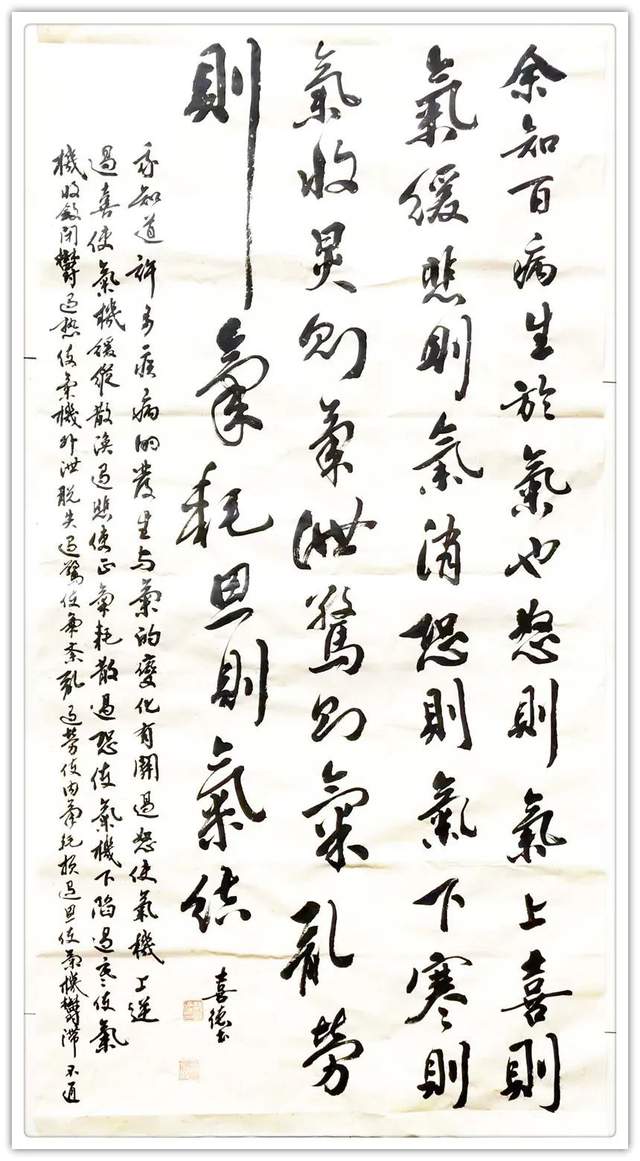 余知百病生於氣也怒則氣上喜則
氣緩悲則氣消恐則氣下寒則
氣收炅則氣泄驚則氣亂勞
則氣耗思則氣結
喜德书
我知道許多疾病的發生与氣的變化有關過怒使氣機上逆
過喜使氣機緩縱散渙過悲使正氣耗散過恐使氣機下陷過寒使氣
機收斂閉鬱過熱使氣機外泄脫失過驚使氣紊亂過勞使內氣耗損過思使氣機鬱滯不通